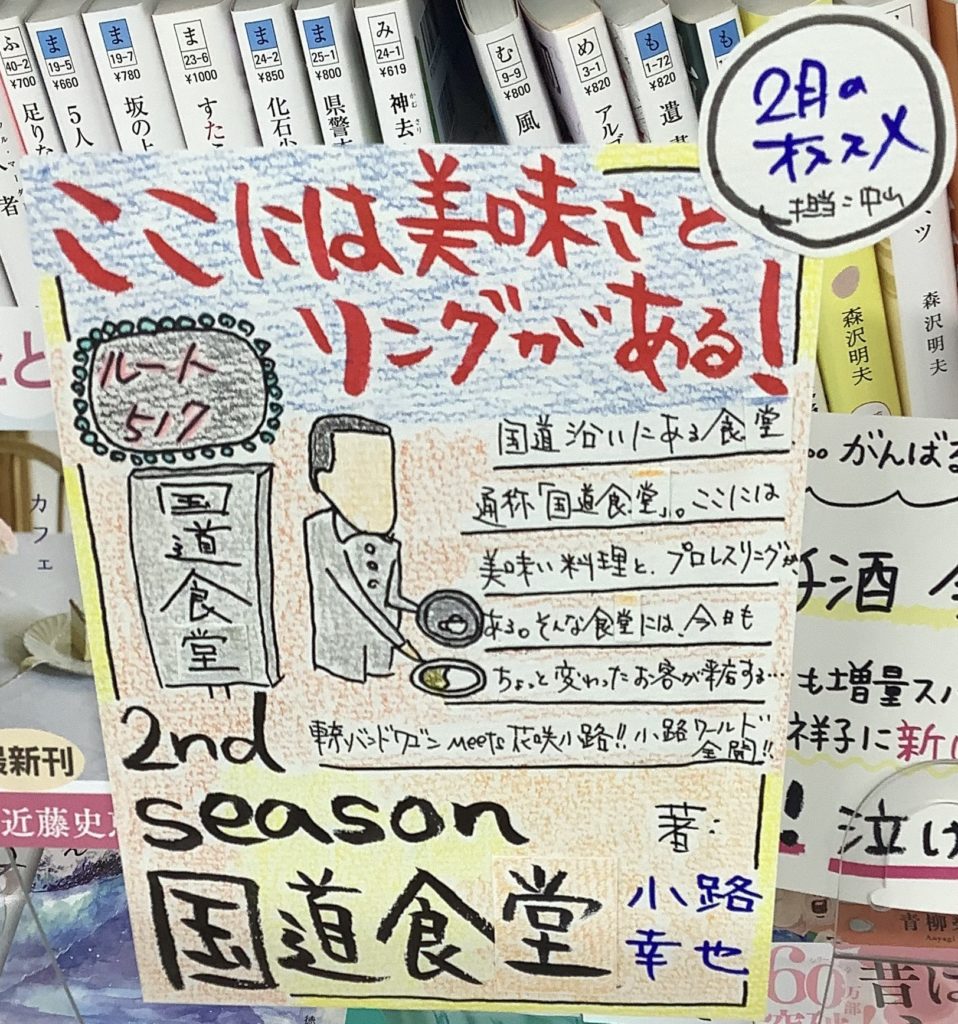 ふ
40-2
¥700
足りな
ま
19-5
¥660
5人
ま
19-7
¥780
坂の上
ま
23-6
¥1000
すたこ
ま
24-2
¥850
化石少
ま
25-1
¥800
県警
み
24-1
¥619
神去
む
9-9
¥800
風
め
3-1
¥820
アル
も
1-72
¥820
遺
も
者
2月の
オススメ
担当:中山
ここには美味さと
リングがある!
ルート
517
国道食堂
国道沿いにある食堂
通称「国道食堂」。ここには
美味い料理と、プロレスリングが
ある。そんな食堂には、今日も
ちょっと変わったお客が来店する…
東京バンドワゴン meets 花咲小路!!小路ワールド
全開!!
2nd
season
著:
国道食堂
小路
幸也
森沢明夫
ツ
森沢明夫
がんばる
酒
も増量ス
祥子に新し
! 泣け
青柳
60万部
昔は
カフェ
最新刊
近藤史